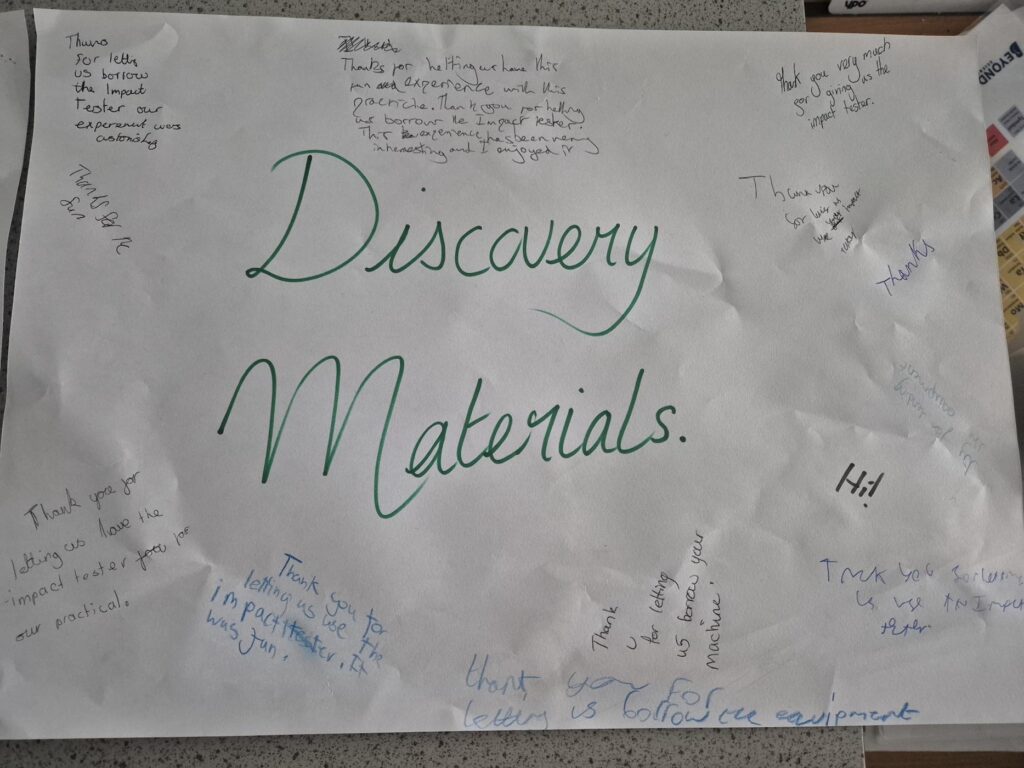 Thanks
for letting
us borrow
the Impact
Tester our
experiment was
Thanks for hetting us have this
fun experience with this
practiche. Thank you for hetting
us borrow the Impact tester.
This experience has been very
interesting and I enjoyed it
thank you very much
for giving us the
impact tester.
Thanks for the
fun
Thank you
for
Thanks
Discovery
Materials.
Hi!
Thank you for
letting us have the
impact tester for
our practical.
Thank you for
letting us use the
impact tester. It
was fun.
Thank
u
for letting
us borrow your
machine!
Thank you for letting
us use the Impact
tester
thank you for
letting us borrow the equipment
BEYOND